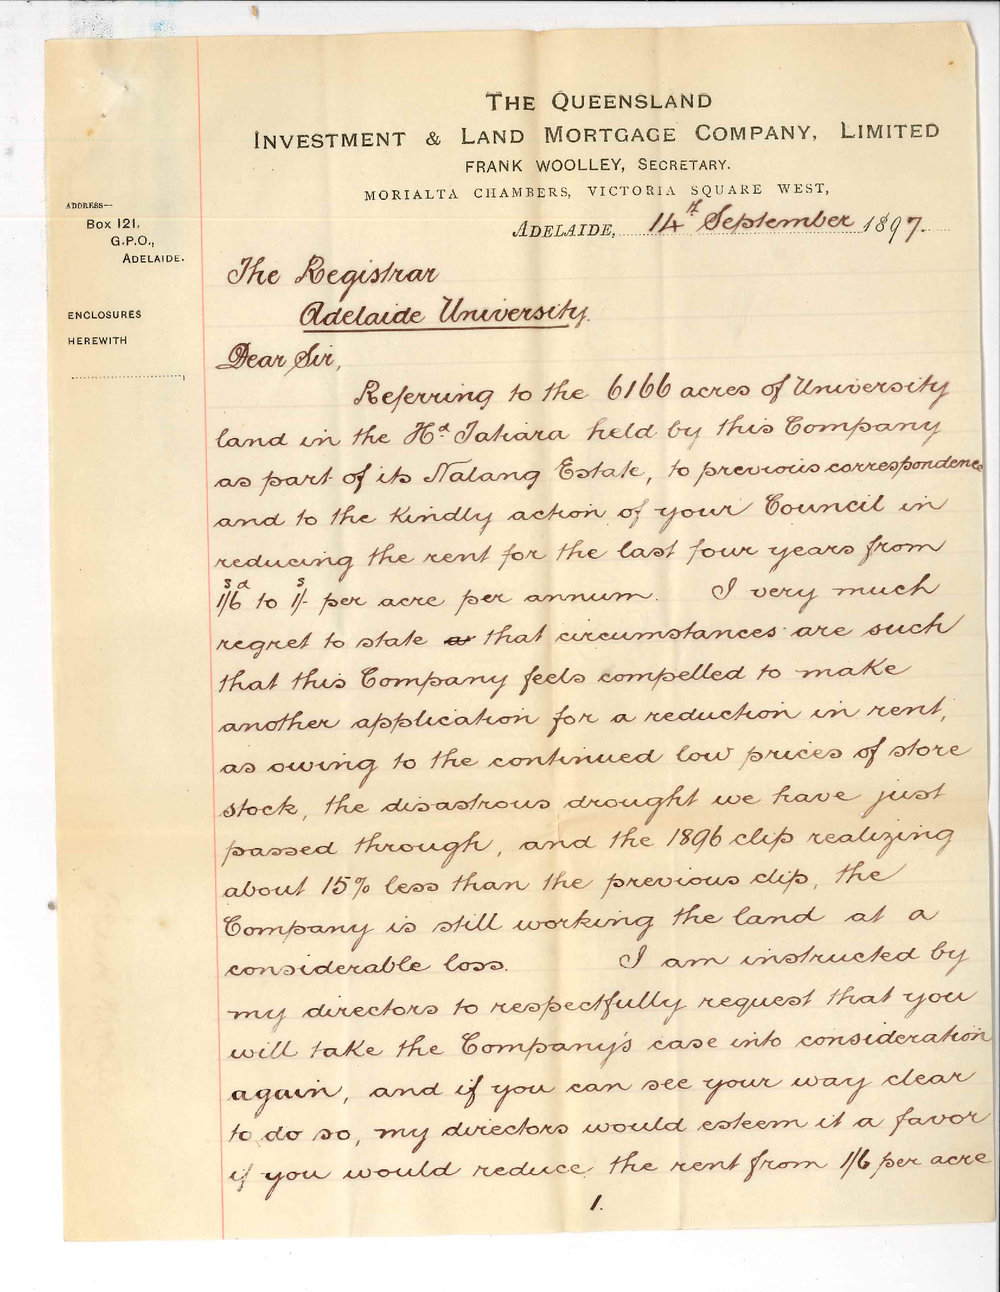 THE QUEENSLAND
INVESTMENT & LAND MORTGAGE COMPANY, LIMITED
FRANK WOOLLEY, SECRETARY.
MORIALTA CHAMBERS, VICTORIA SQUARE WEST,
ADELAIDE, 14th September 1897.
ADDRESS—
Box 121,
G.P.O.,
ADELAIDE.
ENCLOSURES
HEREWITH
The Registrar
Adelaide University.
Dear Sir,
Referring to the 6166 acres of University
land in the Hd. Tatiara held by this Company
as part of its Nalang Estate, to previous correspondence
and to the kindly action of your Council in
reducing the rent for the last four years from
s d s
1/6 to 1/- per acre per annum. I very much
regret to state as that circumstances are such
that this Company feels compelled to make
another application for a reduction in rent,
as owing to the continued low prices of store
stock, the disastrous drought we have just
passed through, and the 1896 clip realizing
about 15% less than the previous clip, the
Company is still working the land at a
considerable loss. I am instructed by
my directors to respectfully request that you
will take the Company's case into consideration
again, and if you can see your way clear
to do so, my directors would esteem it a favor
if you would reduce the rent from 1/6 per acre
1.